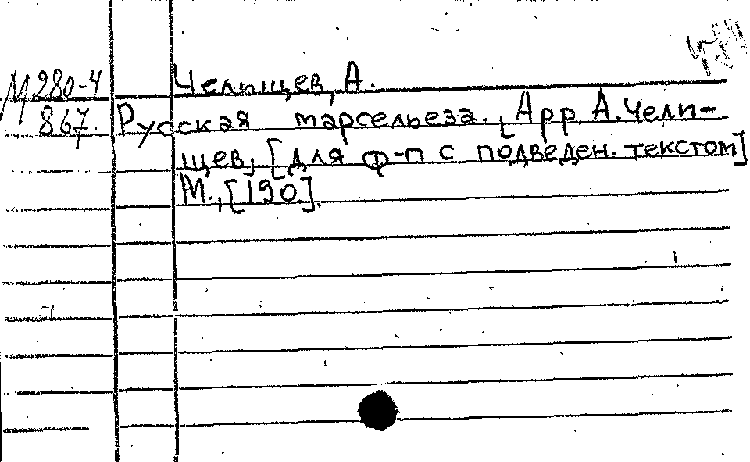 М 280-4
867.
Челищев, А.
Русская марсельеза. [Арр А. Чели-
щев, [для ф-п с подведен. текстом]
М., [190.].